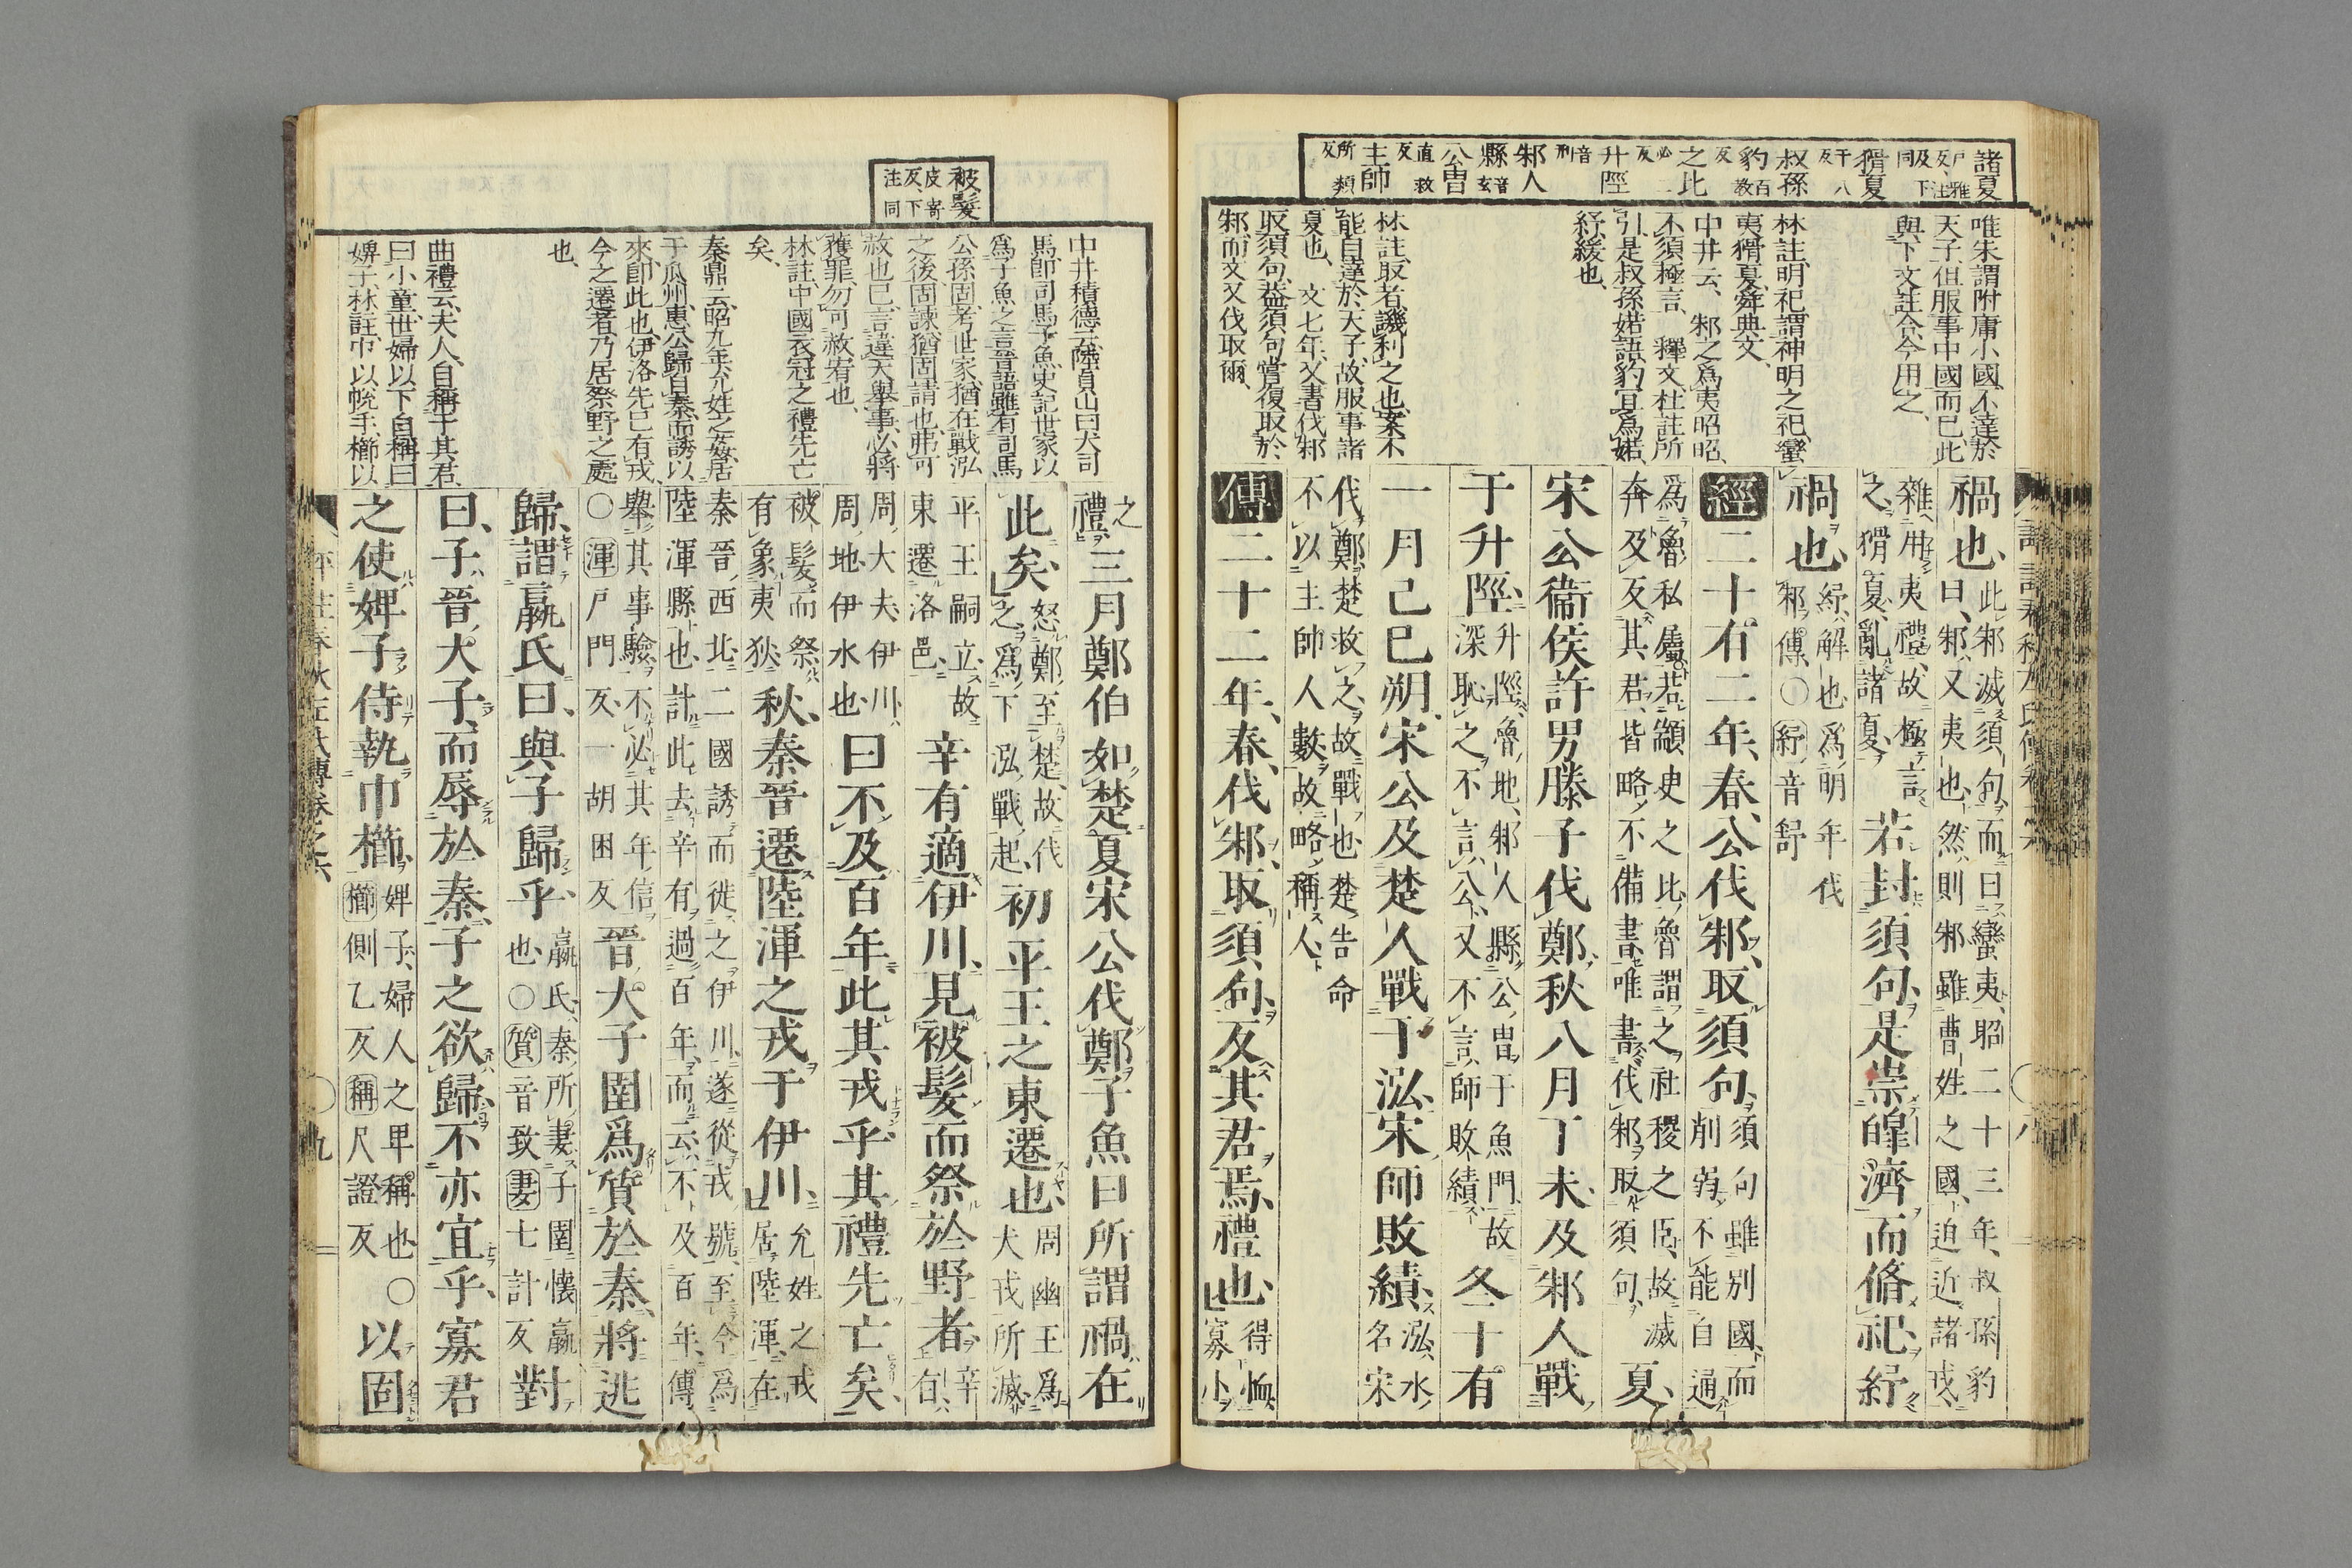 諸夏 戶雅反注及下同
猾夏 于八反
叔孫豹 百教反
之比 必二反
升陘 音刑
邾人縣 音玄
公冑 直救反
主帥 所類反
唯朱謂附庸小國不達於
天子但服事中國而已此
與下文註合今用之
林註明祀謂神明之祀蠻
夷猾夏舜典文
中井云邾之爲夷昭昭
不須極言 釋文杜註所
引是叔孫婼語豹宜爲婼
紓緩也
林註取者譏利之也案不
能自達於天子故服事諸
夏也 文七年又書伐邾
取須句益須句嘗復取於
邾而文又伐取爾
禍也此邾滅須句而曰蠻夷昭二十三年叔孫豹
曰邾又夷也然則邾雖曹姓之國迫近諸戎
雜用夷禮故極言
之猾夏亂諸夏若封須句是崇皥濟而脩祀紓
禍也紓解也爲明年伐
邾傳○紓音舒
經二十有二年春公伐邾取須句須句雖別國而
削弱不能自通
爲魯私屬若顓臾之比魯謂之社稷之臣故滅
奔及反其君皆略不備書唯書伐邾取須句夏
宋公衞侯許男滕子伐鄭秋八月丁未及邾人戰
于升陘升陘魯地邾人縣公冑于魚門故
深恥之不言公又不言師敗績冬十有
一月己巳朔宋公及楚人戰于泓宋師敗績泓水名宋
伐鄭楚救之故戰也楚告命
不以主帥人數故略稱人
傳二十二年春伐邾取須句反其君焉禮也得恤
寡小
被髮 皮寄反下注同
中井積德云陸貞山曰大司
馬卽司馬子魚史記世家以
爲子魚之言晉語雖有司馬
公孫固考世家猶在戰泓
之後固諫猶固請也弗可
赦也已言違天舉事必將
獲罪勿可赦宥也
林註中國衣冠之禮先亡
矣
秦鼎云昭九年允姓之姦居
于瓜州惠公歸自秦而誘以
來卽此也伊洛先已有戎
今之遷者乃居祭野之處
也
曲禮云夫人自稱于其君
曰小童世婦以下自稱曰
婢子林註巾以帨手櫛以
之
禮三月鄭伯如楚夏宋公伐鄭子魚曰所謂禍在
此矣怒鄭至楚故伐
之爲下泓戰起初平王之東遷也周幽王爲
犬戎所滅
平王嗣立故
東遷洛邑辛有適伊川見被髮而祭於野者辛有
周大夫伊川
周地伊水也曰不及百年此其戎乎其禮先亡矣
被髮而祭
有象夷狄秋秦晉遷陸渾之戎于伊川允姓之戎
居陸渾在
秦晉西北二國誘而徙之伊川遂從戎號至今爲
陸渾縣也計此去辛有過百年而云不及百年傳
舉其事驗不必其年信
○渾戶門反一胡困反晉大子圉爲質於秦將逃
歸謂嬴氏曰與子歸乎嬴氏秦所妻子圉懷嬴
也○質音致妻七計反對
曰子晉大子而辱於秦子之欲歸不亦宜乎寡君
之使婢子侍執巾櫛婢子婦人之卑稱也○
櫛側乙反稱尺證反以固